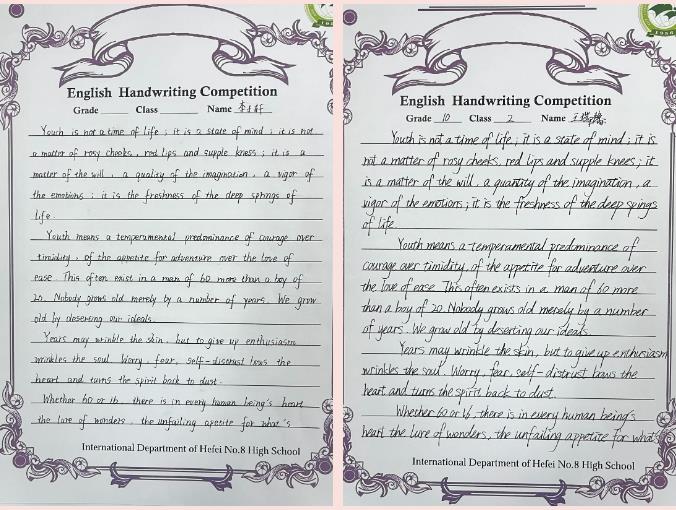 English Handwriting Competition
Grade Class Name
Youth is not a time of life ; it is a state of mind ; it is not
a matter of rosy cheeks , red lips and supple kness ; it is a
matter of the will , a quality of the imagination , a vigor of
the emotions ; it is the freshness of the deep springs of
life .
Youth means a temperamental predominance of courage over
timidity , of the appetite for adventure over the love of
ease . This often exist in a man of 60 more than a boy of
20. Nobody grows old merely by a number of years . We grow
old by deserting our ideals .
Years may wrinkle the skin , but to give up enthusiasm
wrinkles the soul . Worry , fear , self-distrust bows the
heart and turns the spirit back to dust .
Whether 60 or 16 , there is in every human being's heart
the lure of wonders , the unfailing apetite for what's
International Department of Hefei No.8 High School
1956
English Handwriting Competition
Grade 10 Class 2 Name
Youth is not a time of life ; it is a state of mind ; it is
not a matter of rosy cheeks, red lips and supple knees ; it
is a matter of the will , a quantity of the imagination , a
vigor of the emotions ; it is the freshness of the deep spings
of life .
Youth means a temperamental predominance of
courage over timidity, of the appetite for adventure over
the love of ease. This often exists in a man of 60 more
than a boy of 20. Nobody grows old merely by a number
of years . We grow old by deserting our ideals.
Years may wrinkle the skin, but to give up enthusiasm
wrinkles the soul. Worry, fear, self-distrust bows the
heart and turns the spirit back to dust.
Whether 60 or 16 , there is in every human being's
heart the lure of wonders, the unfailing appetite for what's
International Department of Hefei No.8 High School